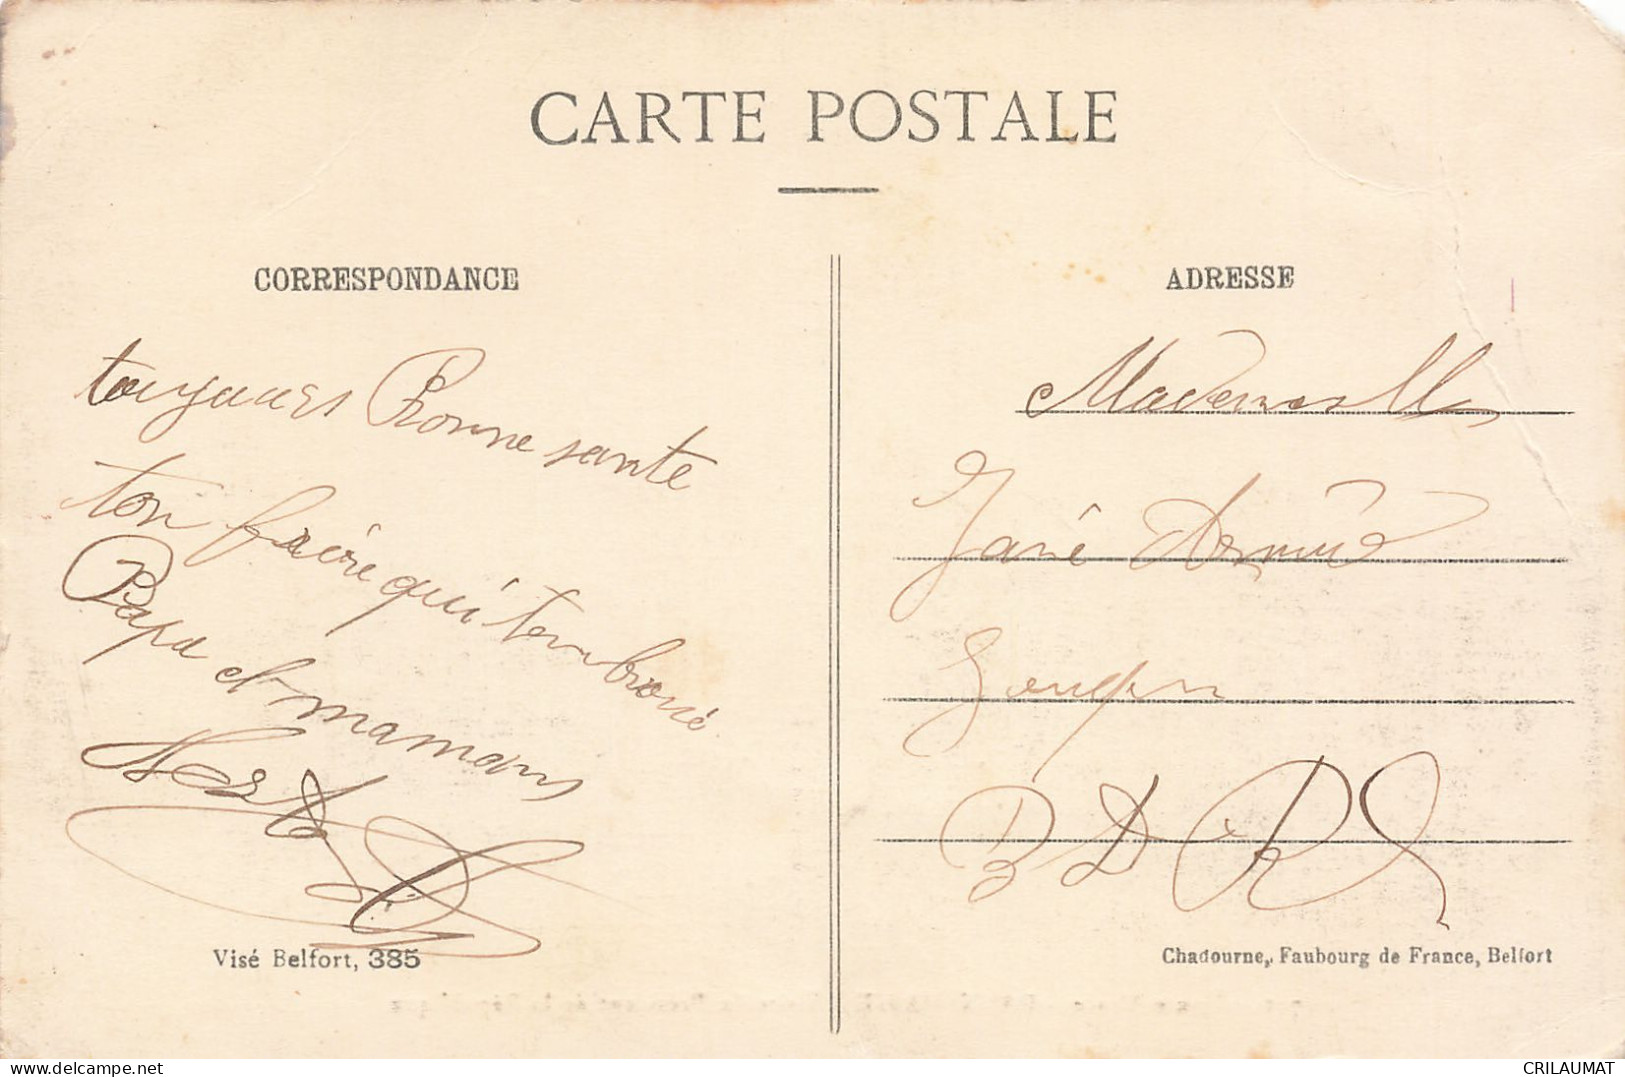 CARTE POSTALE
CORRESPONDANCE
toujours Bonne sante
ton frère qui t'embrasse
Papa et maman
Visé Belfort, 385
ADRESSE
Mademoiselle
Jane
B D R
Chadourne, Faubourg de France, Belfort
delcampe.net
CRILAUMAT